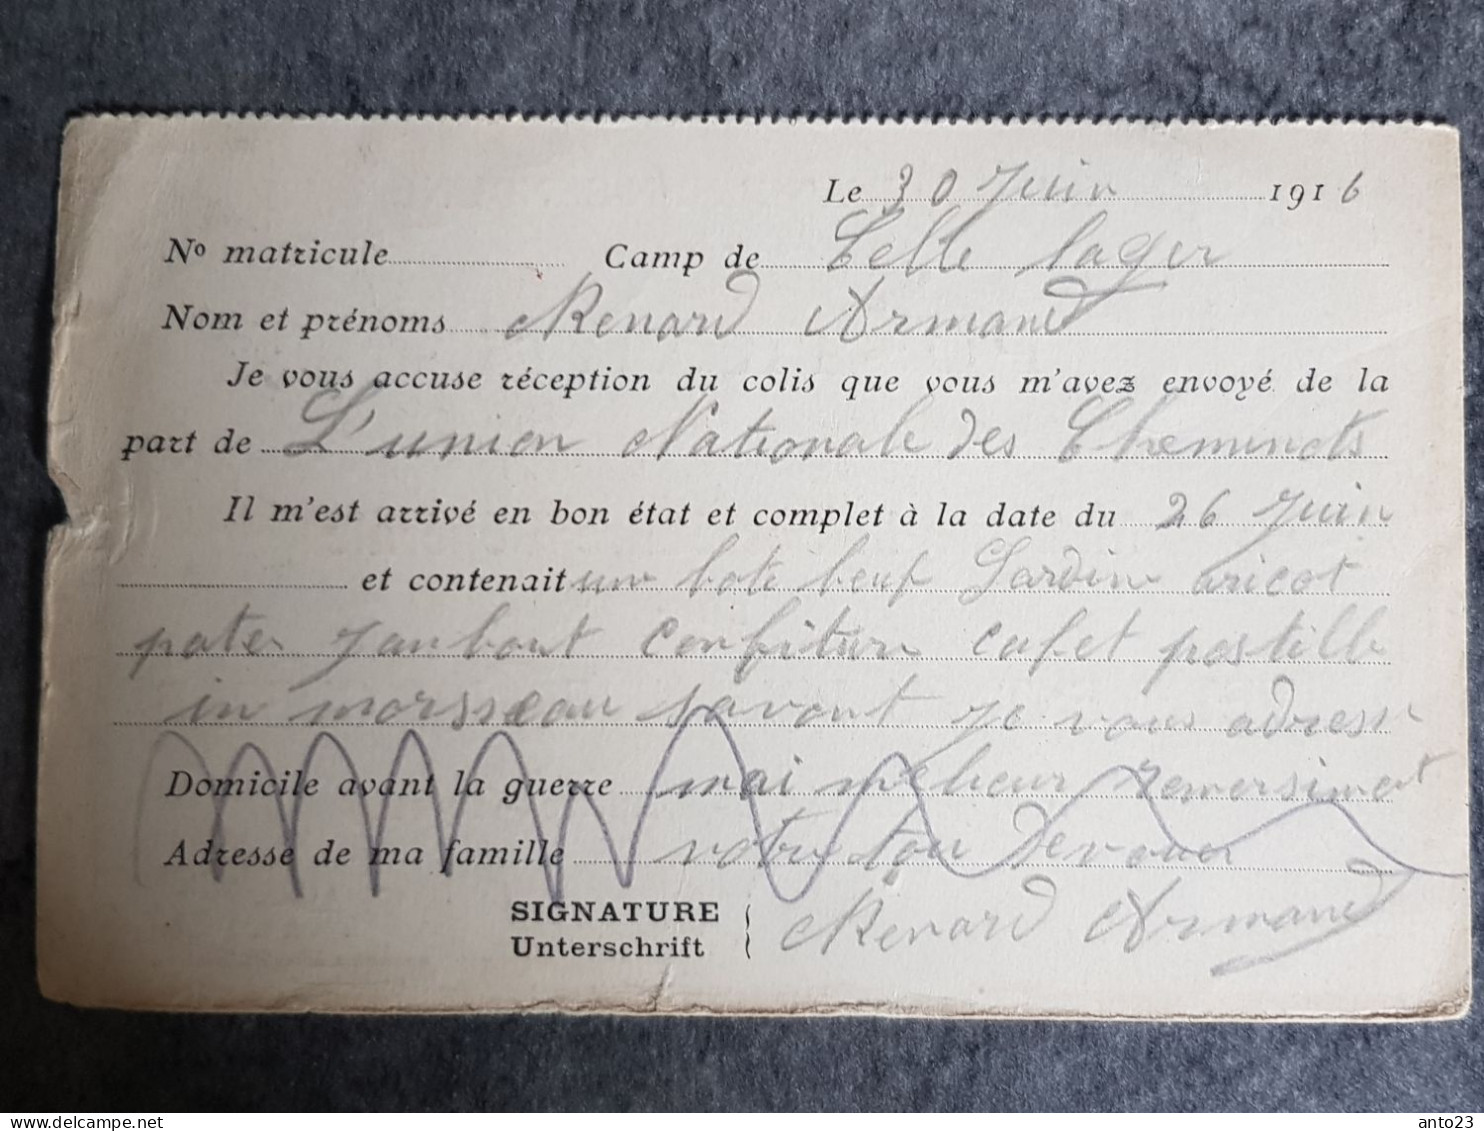 Le 30 Juin 1916
No matricule Camp de Celle lager
Nom et prénoms Renard Armand
Je vous accuse réception du colis que vous m'avez envoyé de la
part de L'union Nationale des Cheminots
Il m'est arrivé en bon état et complet à la date du 26 Juin
et contenait une bote beuf Sardine aricot
pates Jambont confiture cafet pastille
in morsseau savont je vous adresse
Domicile avant la guerre mai meheur remersiment
Adresse de ma famille votre tou devouer
SIGNATURE
Unterschrift Renard Armand
anto23